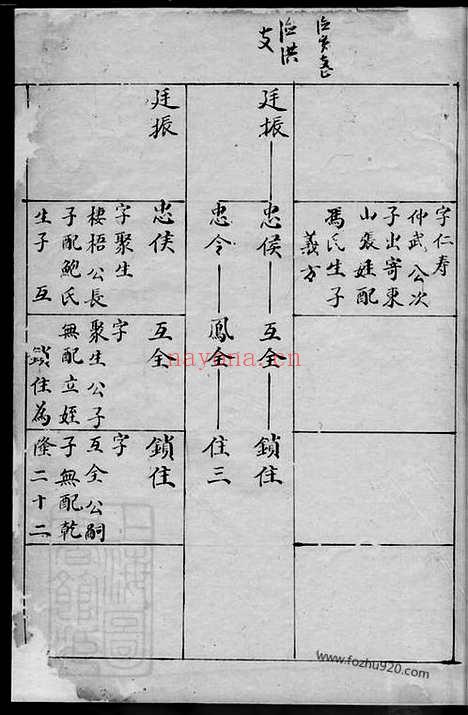 字仁寿
仲武公次
子出寄東
山張姓配
馬氏生子
義方
支
廷振
忠侯
互全
鎖住
忠令
鳳全
住三
廷振
忠侯
字聚生
棲梧公長
子配鮑氏
生子 互
互全
字
聚生公子
無配立姪
鎖住為
鎖住
字
互全公嗣
子無配乾
隆二十二
nayana.cn
www.fozhu920.com